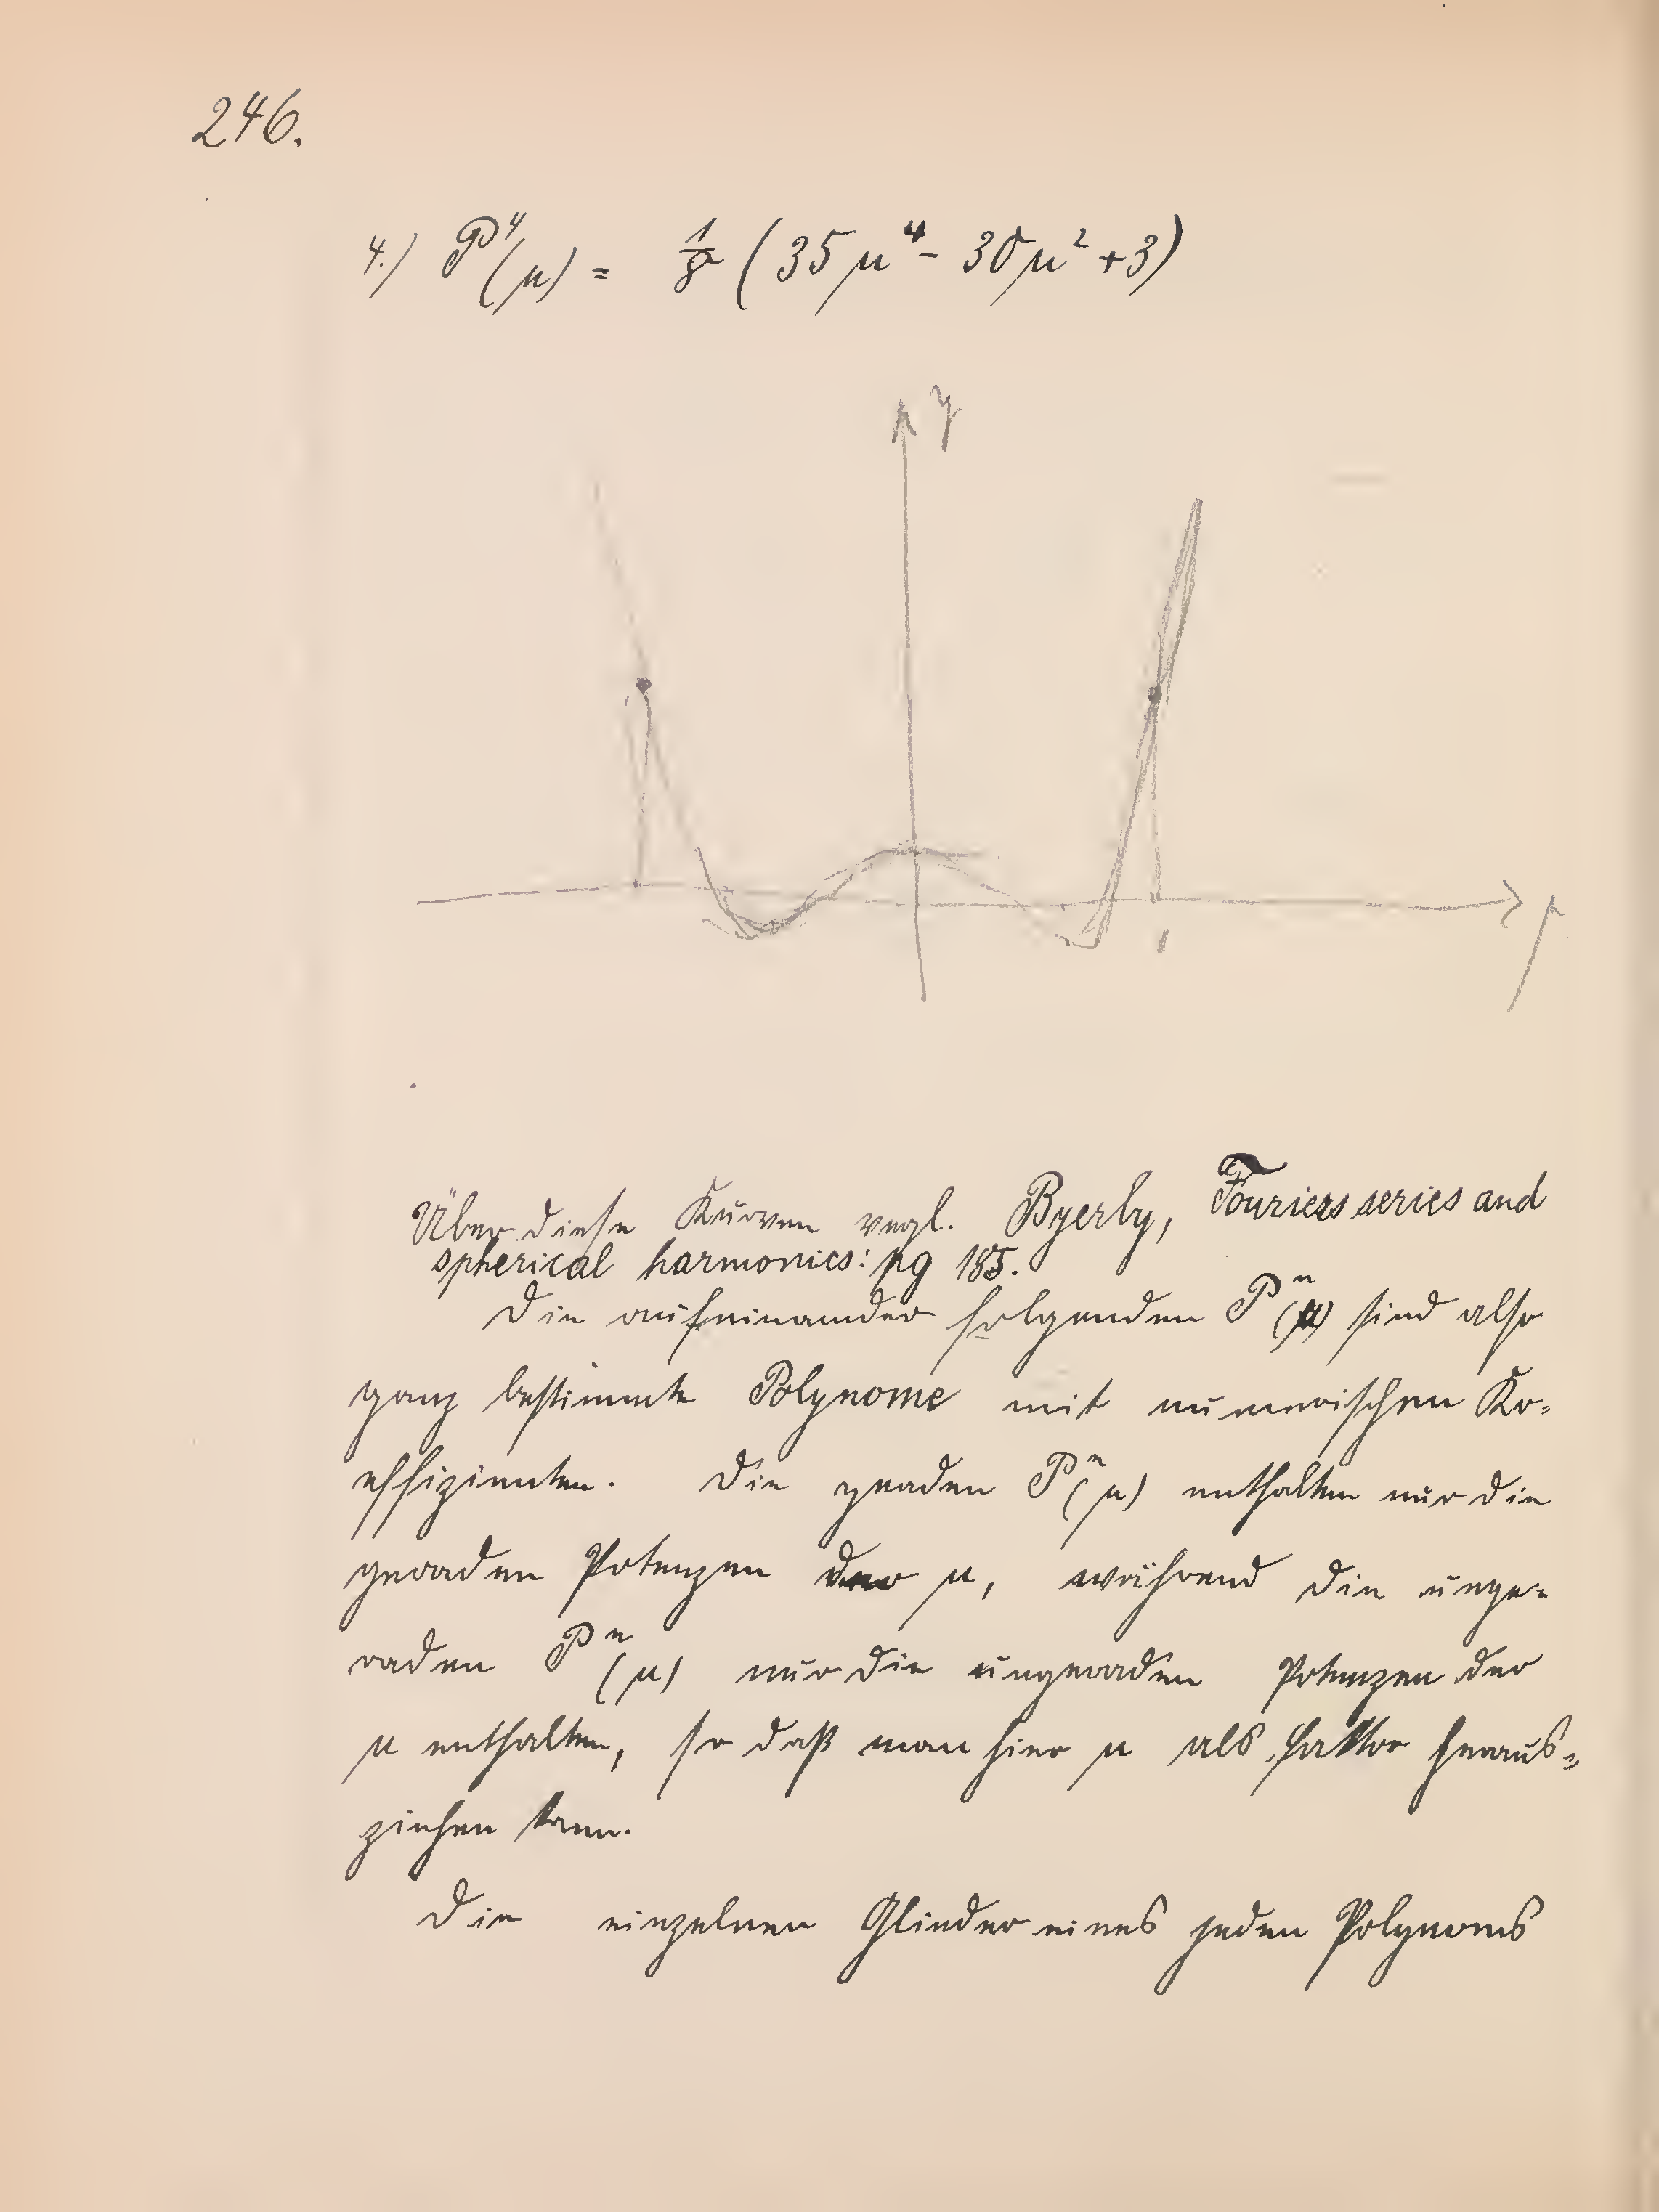 246.
4.) P⁴(μ) = 1/8 (35 μ⁴ - 30 μ² + 3)
y
μ
1
Über diese Kurven vergl. Byerly, Fouriers series and
spherical harmonics: pg 185.
Die aufeinander folgenden Pⁿ(μ) sind also
ganz bestimmte Polynome mit numerischen Ko=
effizienten. Die geraden Pⁿ(μ) enthalten nur die
geraden Potenzen der μ, während die unge=
raden Pⁿ(μ) nur die ungeraden Potenzen der
μ enthalten, so daß man hier μ als Faktor heraus=
ziehen kann.
Die einzelnen Glieder eines jeden Polynoms